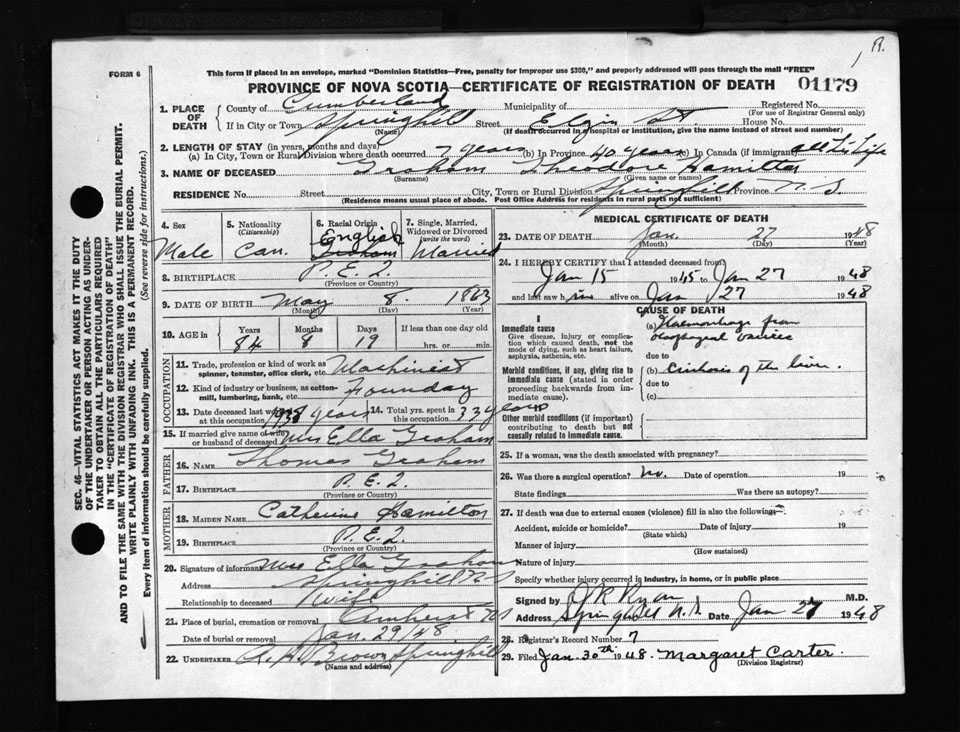 R.
FORM 6
This form if placed in an envelope, marked "Dominion Statistics—Free, penalty for improper use $300," and properly addressed will pass through the mail "FREE"
PROVINCE OF NOVA SCOTIA—CERTIFICATE OF REGISTRATION OF DEATH
01179
1. PLACE OF DEATH
County of Cumberland Municipality of Registered No.
(For use of Registrar General only)
If in City or Town Springhill Street Elgin St. House No.
(Name) (If death occurred in a hospital or institution, give the name instead of street and number)
2. LENGTH OF STAY (in years, months and days)
(a) In City, Town or Rural Division where death occurred 7 years (b) In Province 40 years (c) In Canada (if immigrant) all his life
3. NAME OF DECEASED Graham Theodore Hamilton
(Surname) (Given name or names)
RESIDENCE No. Street City, Town or Rural Division Springhill Province N. S.
(Residence means usual place of abode. Post Office Address for residents in rural parts not sufficient)
4. Sex
Male
5. Nationality
(Citizenship)
Can.
6. Racial Origin
English
7. Single, Married, Widowed or Divorced
(write the word)
Married
8. BIRTHPLACE P.E.I.
(Province or Country)
9. DATE OF BIRTH May 8. 1863
(Month) (Day) (Year)
10. AGE in
Years Months Days If less than one day old
84 8 19 hrs. or min.
OCCUPATION
11. Trade, profession or kind of work as spinner, teamster, office clerk, etc. Machinist
12. Kind of industry or business, as cotton-mill, lumbering, bank, etc. Founday
13. Date deceased last worked at this occupation 1938 years 14. Total yrs. spent in this occupation 33 years
15. If married give name of wife or husband of deceased Mrs Ella Graham
FATHER
16. NAME Thomas Graham
17. BIRTHPLACE P.E.I.
(Province or Country)
MOTHER
18. MAIDEN NAME Catherine Hamilton
19. BIRTHPLACE P.E.I.
(Province or Country)
20. Signature of informant Mrs Ella Graham
Address Springhill N.S.
Relationship to deceased Wife
21. Place of burial, cremation or removal Amherst NS
Date of burial or removal Jan. 29/48
22. UNDERTAKER A. H. Brown Springhill
(Name and address)
MEDICAL CERTIFICATE OF DEATH
23. DATE OF DEATH Jan. 27 1948
(Month) (Day) (Year)
24. I HEREBY CERTIFY that I attended deceased from
Jan 15 1945 to Jan 27 1948
and last saw him alive on Jan 27 1948
CAUSE OF DEATH
I
Immediate cause
Give disease, injury or complication which caused death, not the mode of dying, such as heart failure, asphyxia, asthenia, etc.
(a) Haemorrhage from
oesophageal varices
due to
Morbid conditions, if any, giving rise to immediate cause (stated in order proceeding backwards from immediate cause).
(b) Cirrhosis of the liver.
due to
(c)
II
Other morbid conditions (if important) contributing to death but not causally related to immediate cause.
25. If a woman, was the death associated with pregnancy?
26. Was there a surgical operation? No. Date of operation 19
State findings Was there an autopsy?
27. If death was due to external causes (violence) fill in also the following:
Accident, suicide or homicide? Date of injury 19
(State which)
Manner of injury
(How sustained)
Nature of injury
Specify whether injury occurred in industry, in home, or in public place
Signed by J R Ryan M.D.
Address Springhill N.S. Date Jan 27 1948
28. Registrar's Record Number 7
29. Filed Jan. 30th 1948. Margaret Carter.
(Division Registrar)
SEC. 46—VITAL STATISTICS ACT MAKES IT THE DUTY
OF THE UNDERTAKER OR PERSON ACTING AS UNDER-
TAKER TO OBTAIN ALL THE PARTICULARS REQUIRED
IN THE "CERTIFICATE OF REGISTRATION OF DEATH"
AND TO FILE THE SAME WITH THE DIVISION REGISTRAR WHO SHALL ISSUE THE BURIAL PERMIT.
WRITE PLAINLY WITH UNFADING INK. THIS IS A PERMANENT RECORD.
Every item of information should be carefully supplied. (See reverse side for instructions.)